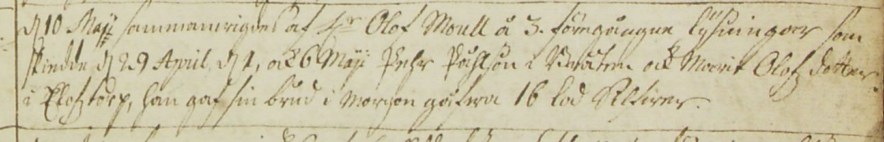 d 10 Maji sammanwigdes af Hr Olof Moull å 3. föregångne lysningar som
skedde d 29 April, d 1, och 6 Maji Pehr Påhlson i och Marit Olofz dotter
i Elofztorp, han gaf sin brud i Morgon gåfwa 16 lod Silfwer.